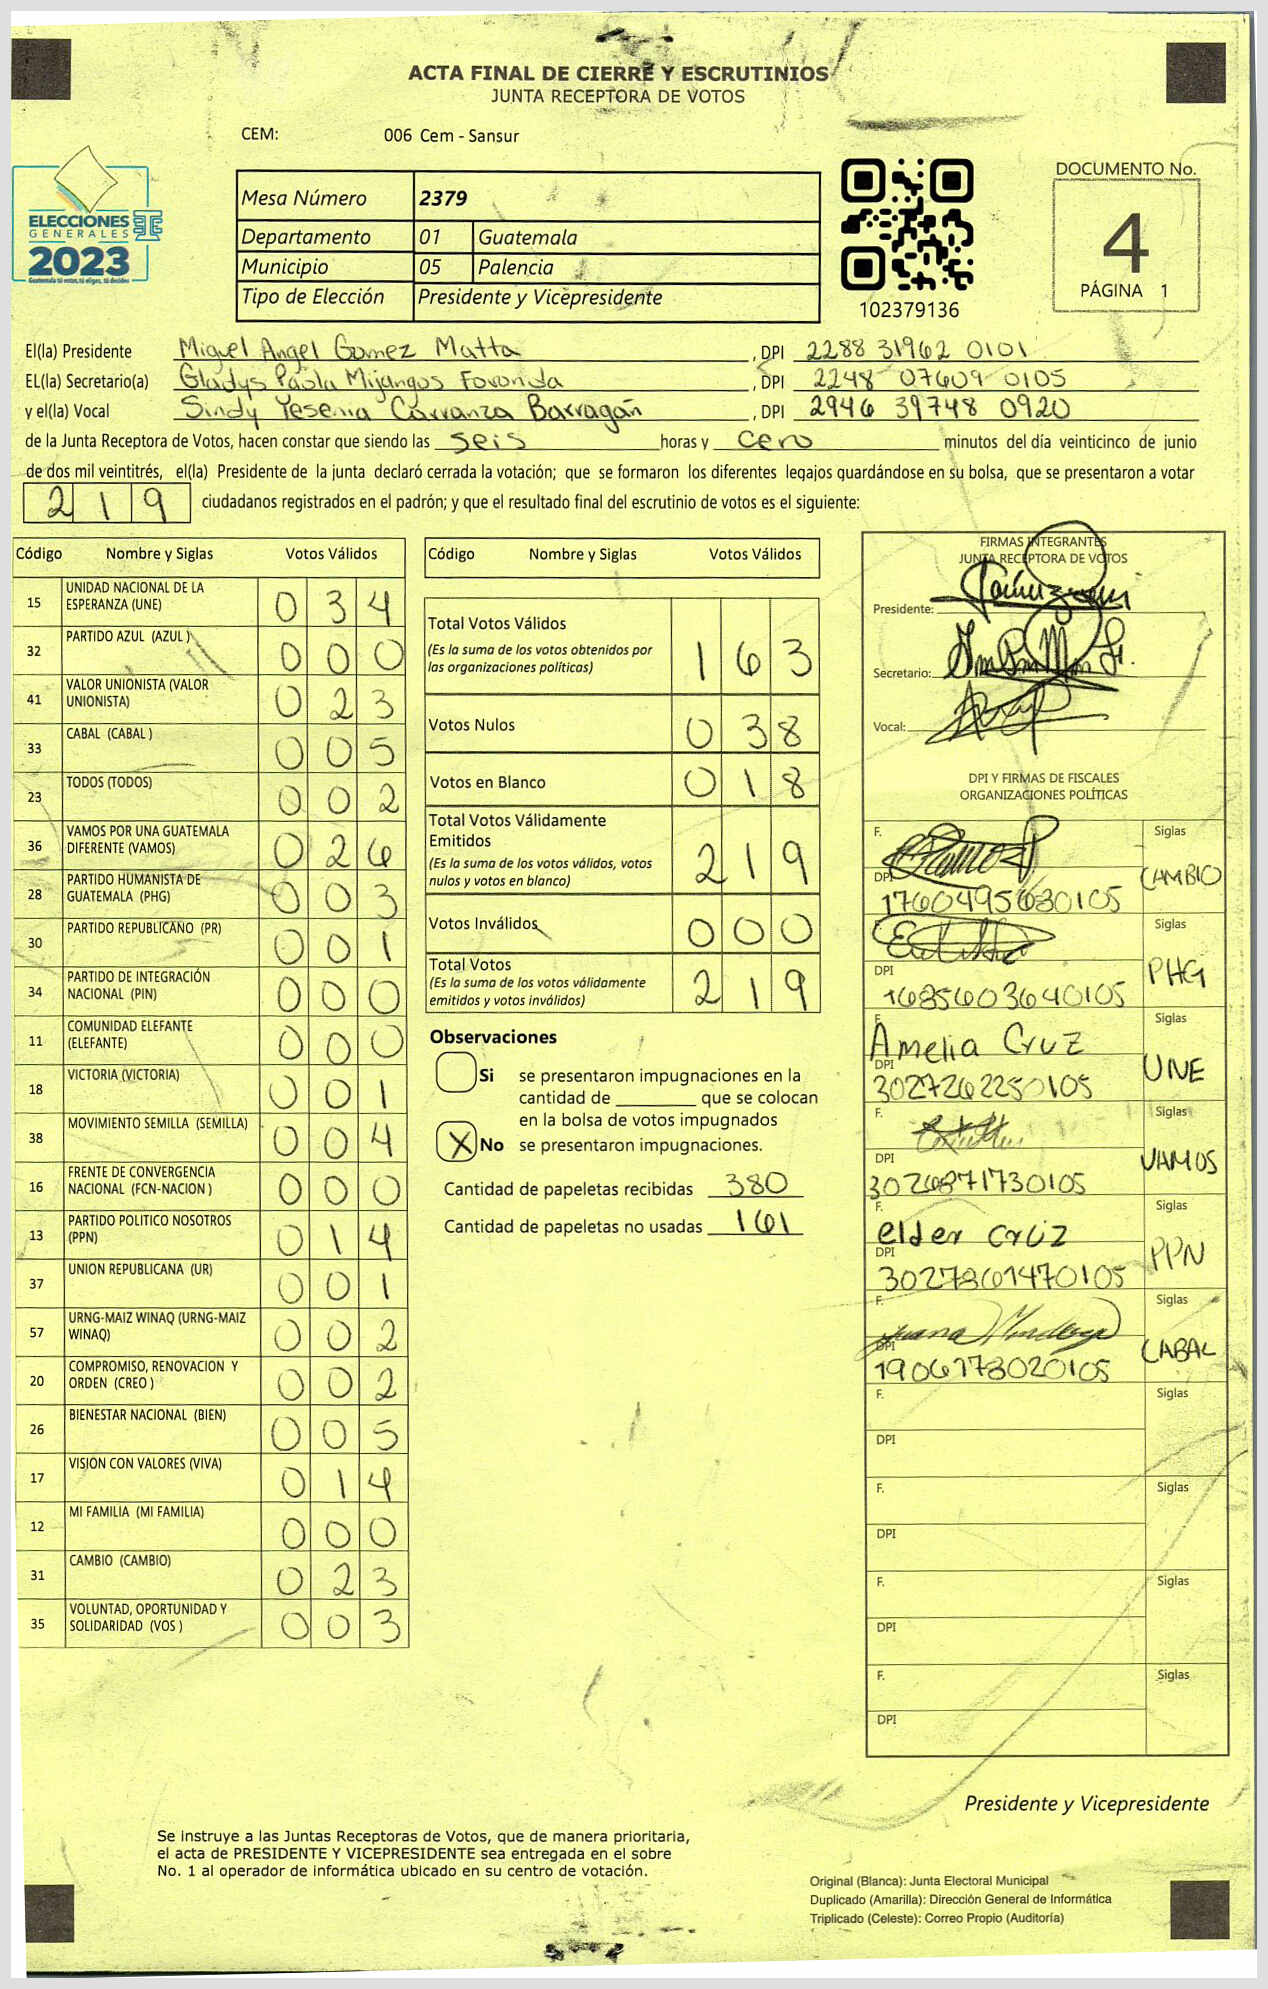 ACTA FINAL DE CIERRE Y ESCRUTINIOS
JUNTA RECEPTORA DE VOTOS
CEM: 006 Cem - Sansur
ELECCIONES
GENERALES
2023
Guatemala tú votas, tú eliges, tú decides
Mesa Número 2379
Departamento 01 Guatemala
Municipio 05 Palencia
Tipo de Elección Presidente y Vicepresidente
102379136
DOCUMENTO No.
4
PÁGINA 1
El(la) Presidente Miguel Angel Gomez Matta , DPI 2288 31962 0101
EL(la) Secretario(a) Gladys Paola Mijangos Foronda , DPI 2248 07609 0105
y el(la) Vocal Sindy Yesenia Carranza Barragán , DPI 2946 39748 0920
de la Junta Receptora de Votos, hacen constar que siendo las seis horas y cero minutos del día veinticinco de junio
de dos mil veintitrés, el(la) Presidente de la junta declaró cerrada la votación; que se formaron los diferentes legajos guardándose en su bolsa, que se presentaron a votar
219 ciudadanos registrados en el padrón; y que el resultado final del escrutinio de votos es el siguiente:
Código Nombre y Siglas Votos Válidos
15 UNIDAD NACIONAL DE LA ESPERANZA (UNE) 0 3 4
32 PARTIDO AZUL (AZUL ) 0 0 0
41 VALOR UNIONISTA (VALOR UNIONISTA) 0 2 3
33 CABAL (CABAL ) 0 0 5
23 TODOS (TODOS) 0 0 2
36 VAMOS POR UNA GUATEMALA DIFERENTE (VAMOS) 0 2 6
28 PARTIDO HUMANISTA DE GUATEMALA (PHG) 0 0 3
30 PARTIDO REPUBLICANO (PR) 0 0 1
34 PARTIDO DE INTEGRACIÓN NACIONAL (PIN) 0 0 0
11 COMUNIDAD ELEFANTE (ELEFANTE) 0 0 0
18 VICTORIA (VICTORIA) 0 0 1
38 MOVIMIENTO SEMILLA (SEMILLA) 0 0 4
16 FRENTE DE CONVERGENCIA NACIONAL (FCN-NACION ) 0 0 0
13 PARTIDO POLITICO NOSOTROS (PPN) 0 1 4
37 UNION REPUBLICANA (UR) 0 0 1
57 URNG-MAIZ WINAQ (URNG-MAIZ WINAQ) 0 0 2
20 COMPROMISO, RENOVACION Y ORDEN (CREO ) 0 0 2
26 BIENESTAR NACIONAL (BIEN) 0 0 5
17 VISION CON VALORES (VIVA) 0 1 4
12 MI FAMILIA (MI FAMILIA) 0 0 0
31 CAMBIO (CAMBIO) 0 2 3
35 VOLUNTAD, OPORTUNIDAD Y SOLIDARIDAD (VOS ) 0 0 3
Código Nombre y Siglas Votos Válidos
Total Votos Válidos 1 6 3
(Es la suma de los votos obtenidos por
las organizaciones políticas)
Votos Nulos 0 3 8
Votos en Blanco 0 1 8
Total Votos Válidamente
Emitidos 2 1 9
(Es la suma de los votos válidos, votos
nulos y votos en blanco)
Votos Inválidos 0 0 0
Total Votos
(Es la suma de los votos válidamente
emitidos y votos inválidos) 2 1 9
Observaciones
Si se presentaron impugnaciones en la
cantidad de ________ que se colocan
en la bolsa de votos impugnados
X No se presentaron impugnaciones.
Cantidad de papeletas recibidas 380
Cantidad de papeletas no usadas 161
FIRMAS INTEGRANTES
JUNTA RECEPTORA DE VOTOS
Presidente:
Secretario:
Vocal:
DPI Y FIRMAS DE FISCALES
ORGANIZACIONES POLÍTICAS
F. Siglas
DPI 1760495630105 CAMBIO
F. Siglas
DPI 1685603640105 PHG
F. Amelia Cruz Siglas
DPI 3027262250105 UNE
F. Siglas
DPI 3026871730105 VAMOS
F. elder cruz Siglas
DPI 3027361470105 PPN
F. Juana Mendoza Siglas
DPI 1906173020105 CABAL
F. Siglas
DPI
F. Siglas
DPI
F. Siglas
DPI
F. Siglas
DPI
Presidente y Vicepresidente
Se instruye a las Juntas Receptoras de Votos, que de manera prioritaria,
el acta de PRESIDENTE Y VICEPRESIDENTE sea entregada en el sobre
No. 1 al operador de informática ubicado en su centro de votación.
Original (Blanca): Junta Electoral Municipal
Duplicado (Amarilla): Dirección General de Informática
Triplicado (Celeste): Correo Propio (Auditoría)